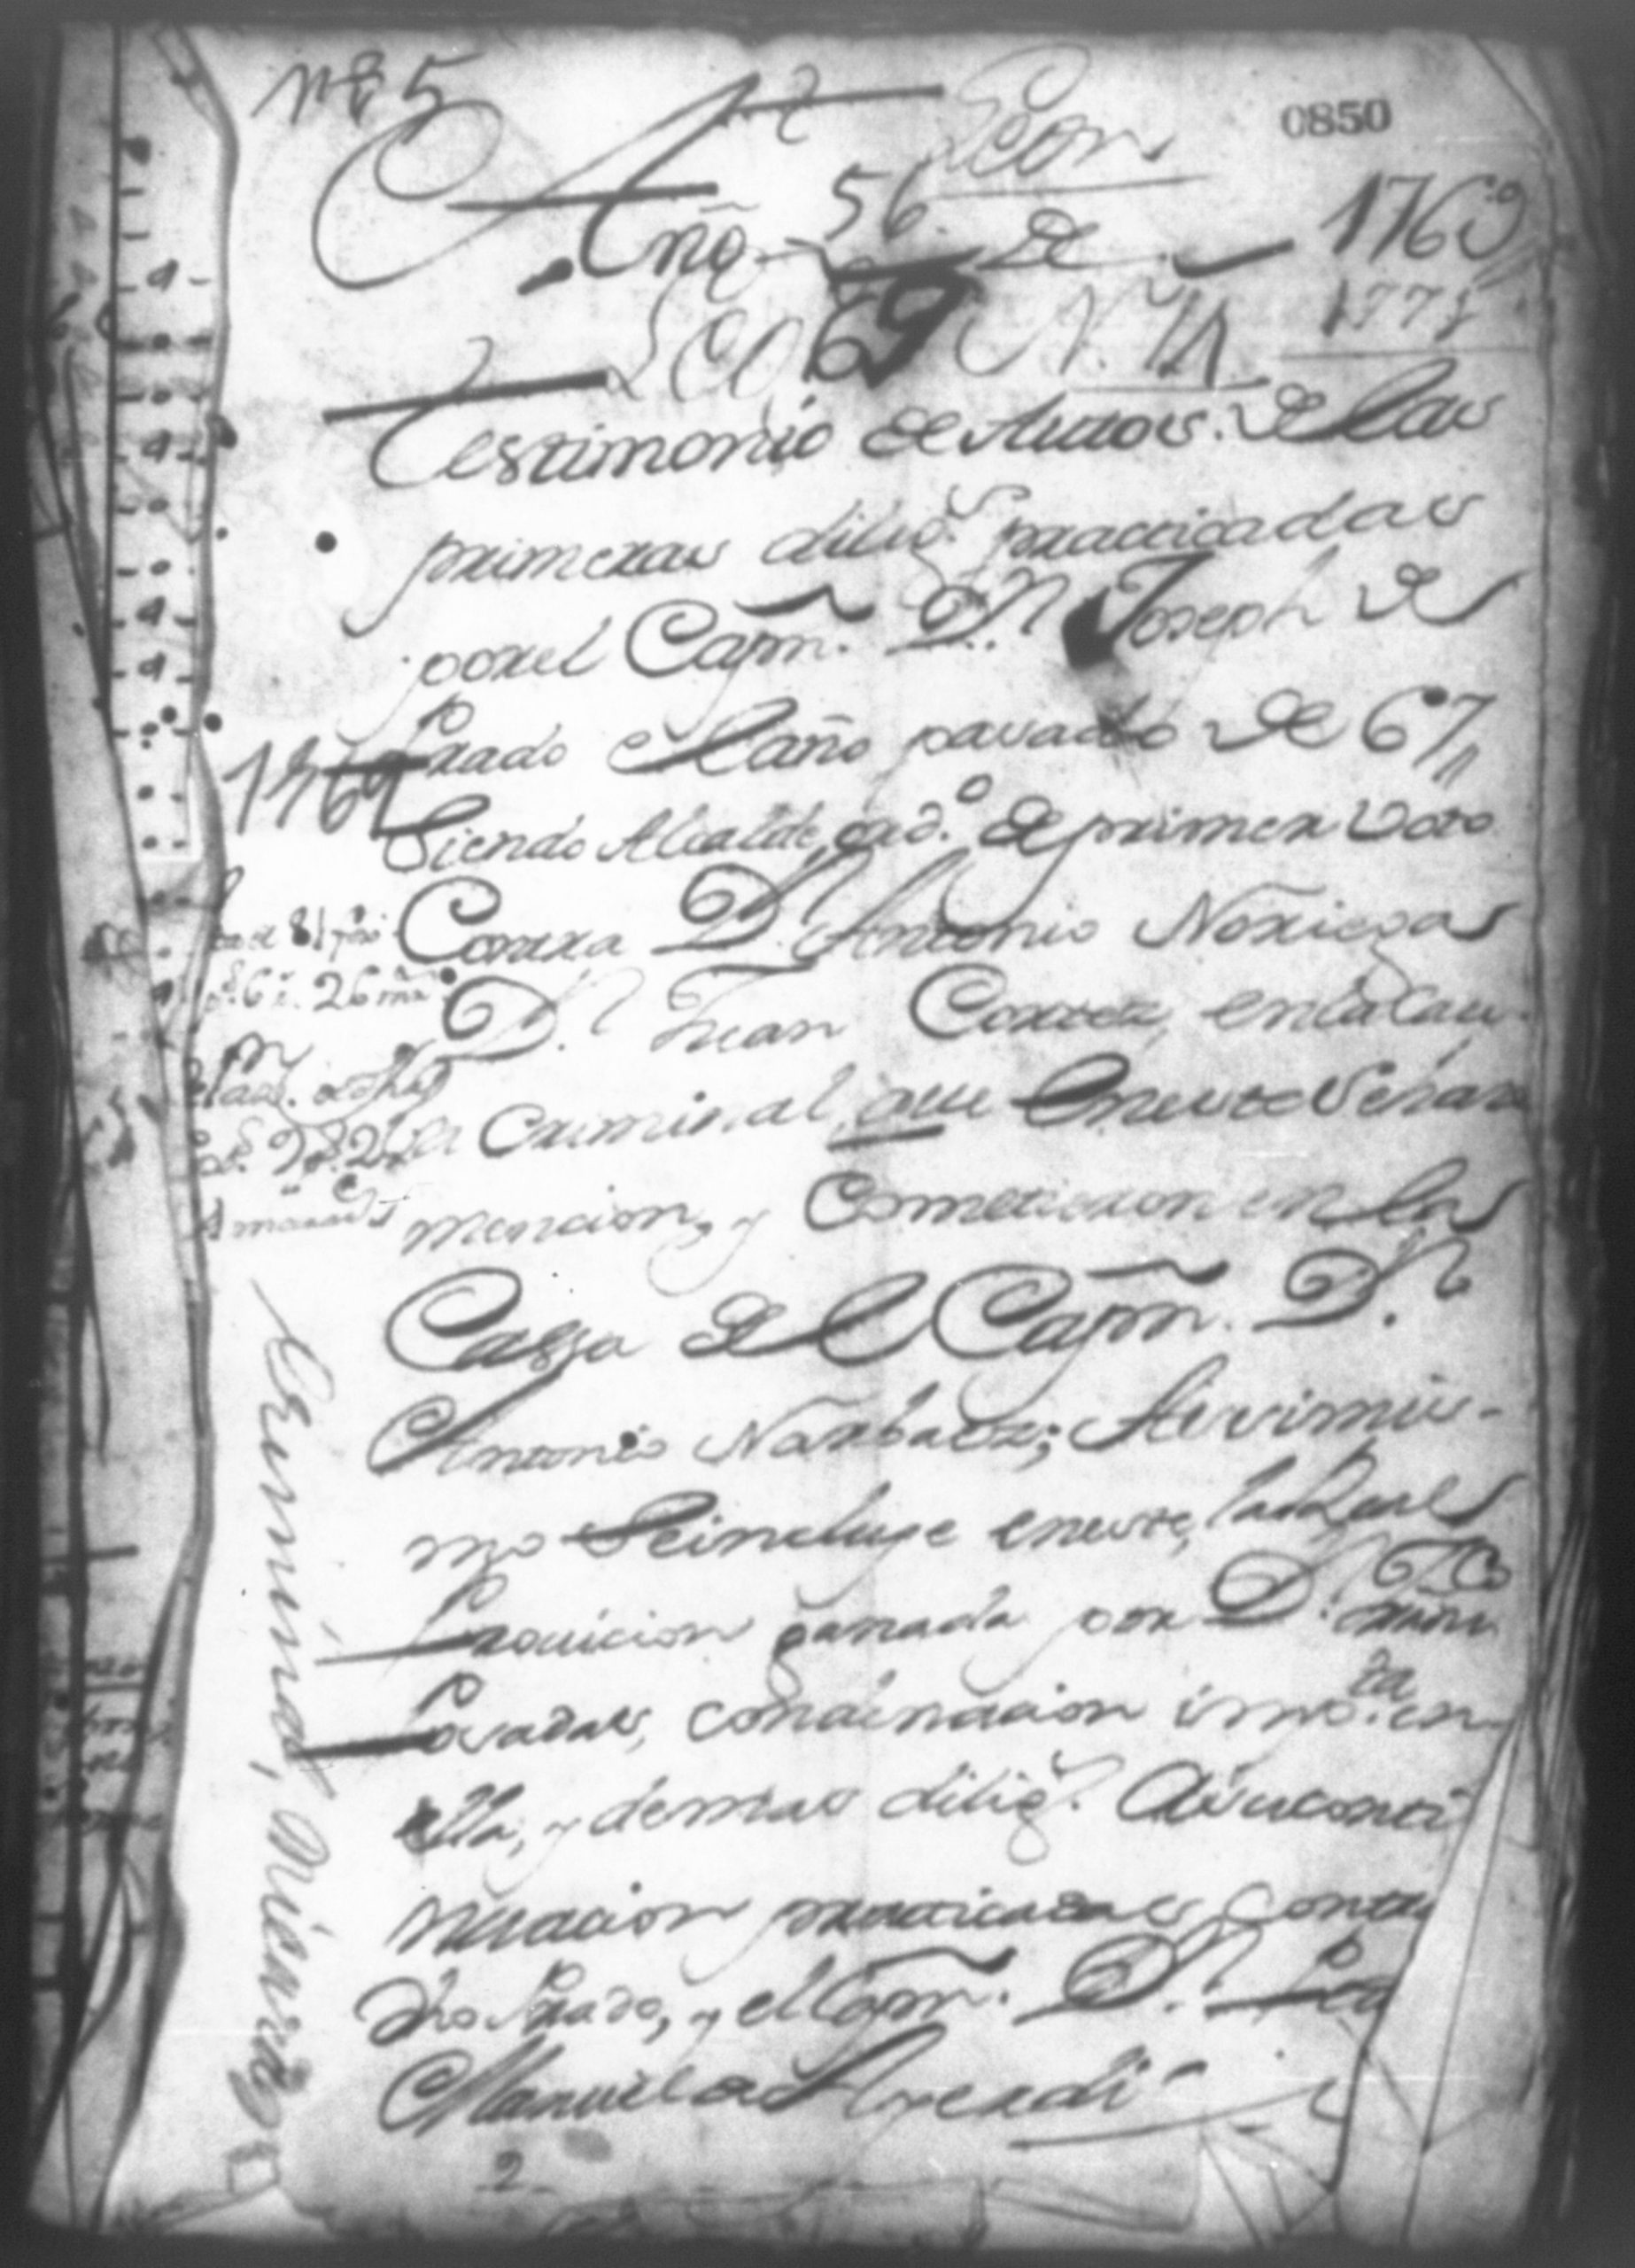 nº 5
0850
Leon
56.
Año de 1769
1775
Leg 69 N. 14
Testimonio de Autos de las
primeras dilig.s practicadas
porel Capn. Dn. Joseph de
Prado el año pasado de 67,,
1769
Siendo Alcalde ord.o de primer voto
Contra Dn. Antonio Noriega
Dn. Juan Cortez, enla Cau-
sa Criminal, que eneste se hara
mencion, y Cometieron en la
Cassa del Capn. Dn.
Antonio Narbaez; Assimis-
mo se incluye eneste, la Real
Provicion ganada por Dn.
Posadas, condenacion impta. en
ella, y demas dilig.s a su conti
nuacion practicadas contra
dho Prado, y el Capn. Dn.
Manuel de Arzendi
Criminal, Nicarag
2